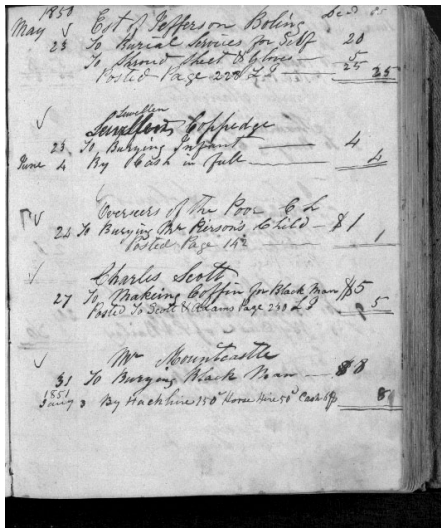 1850
May √ Est of Jefferson Boling
23 To Burial Services for Self 20
To Shroud Sheet & Gloves 5
Posted Page 228 L 25 25
√ Lewellen
Coppedge
23 To Burying Infant 4
June 4 By Cash in full 4
√ Overseers of the Poor
24 To Burying Mr Piersons Child $1
Posted Page 142 1
√ Charles Scott
27 To Makeing Coffin for Black Man $5
Posted To Scott & Page 5
√ Mr Mountcastle
31 To Burying Black Man $8
1851
Jany 3 By Hackhire 150 Horse Hire 50 Cash 8